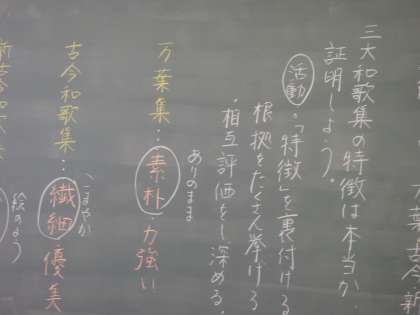 三大和歌集の特徴は本当か
証明しよう。
活動・「特徴」を裏付ける
根拠をたくさん挙げろ
・相互評価をし深める。
ありのまま
万葉集：素朴 力強い
こまやか
古今和歌集：繊細 優美
絵のよう